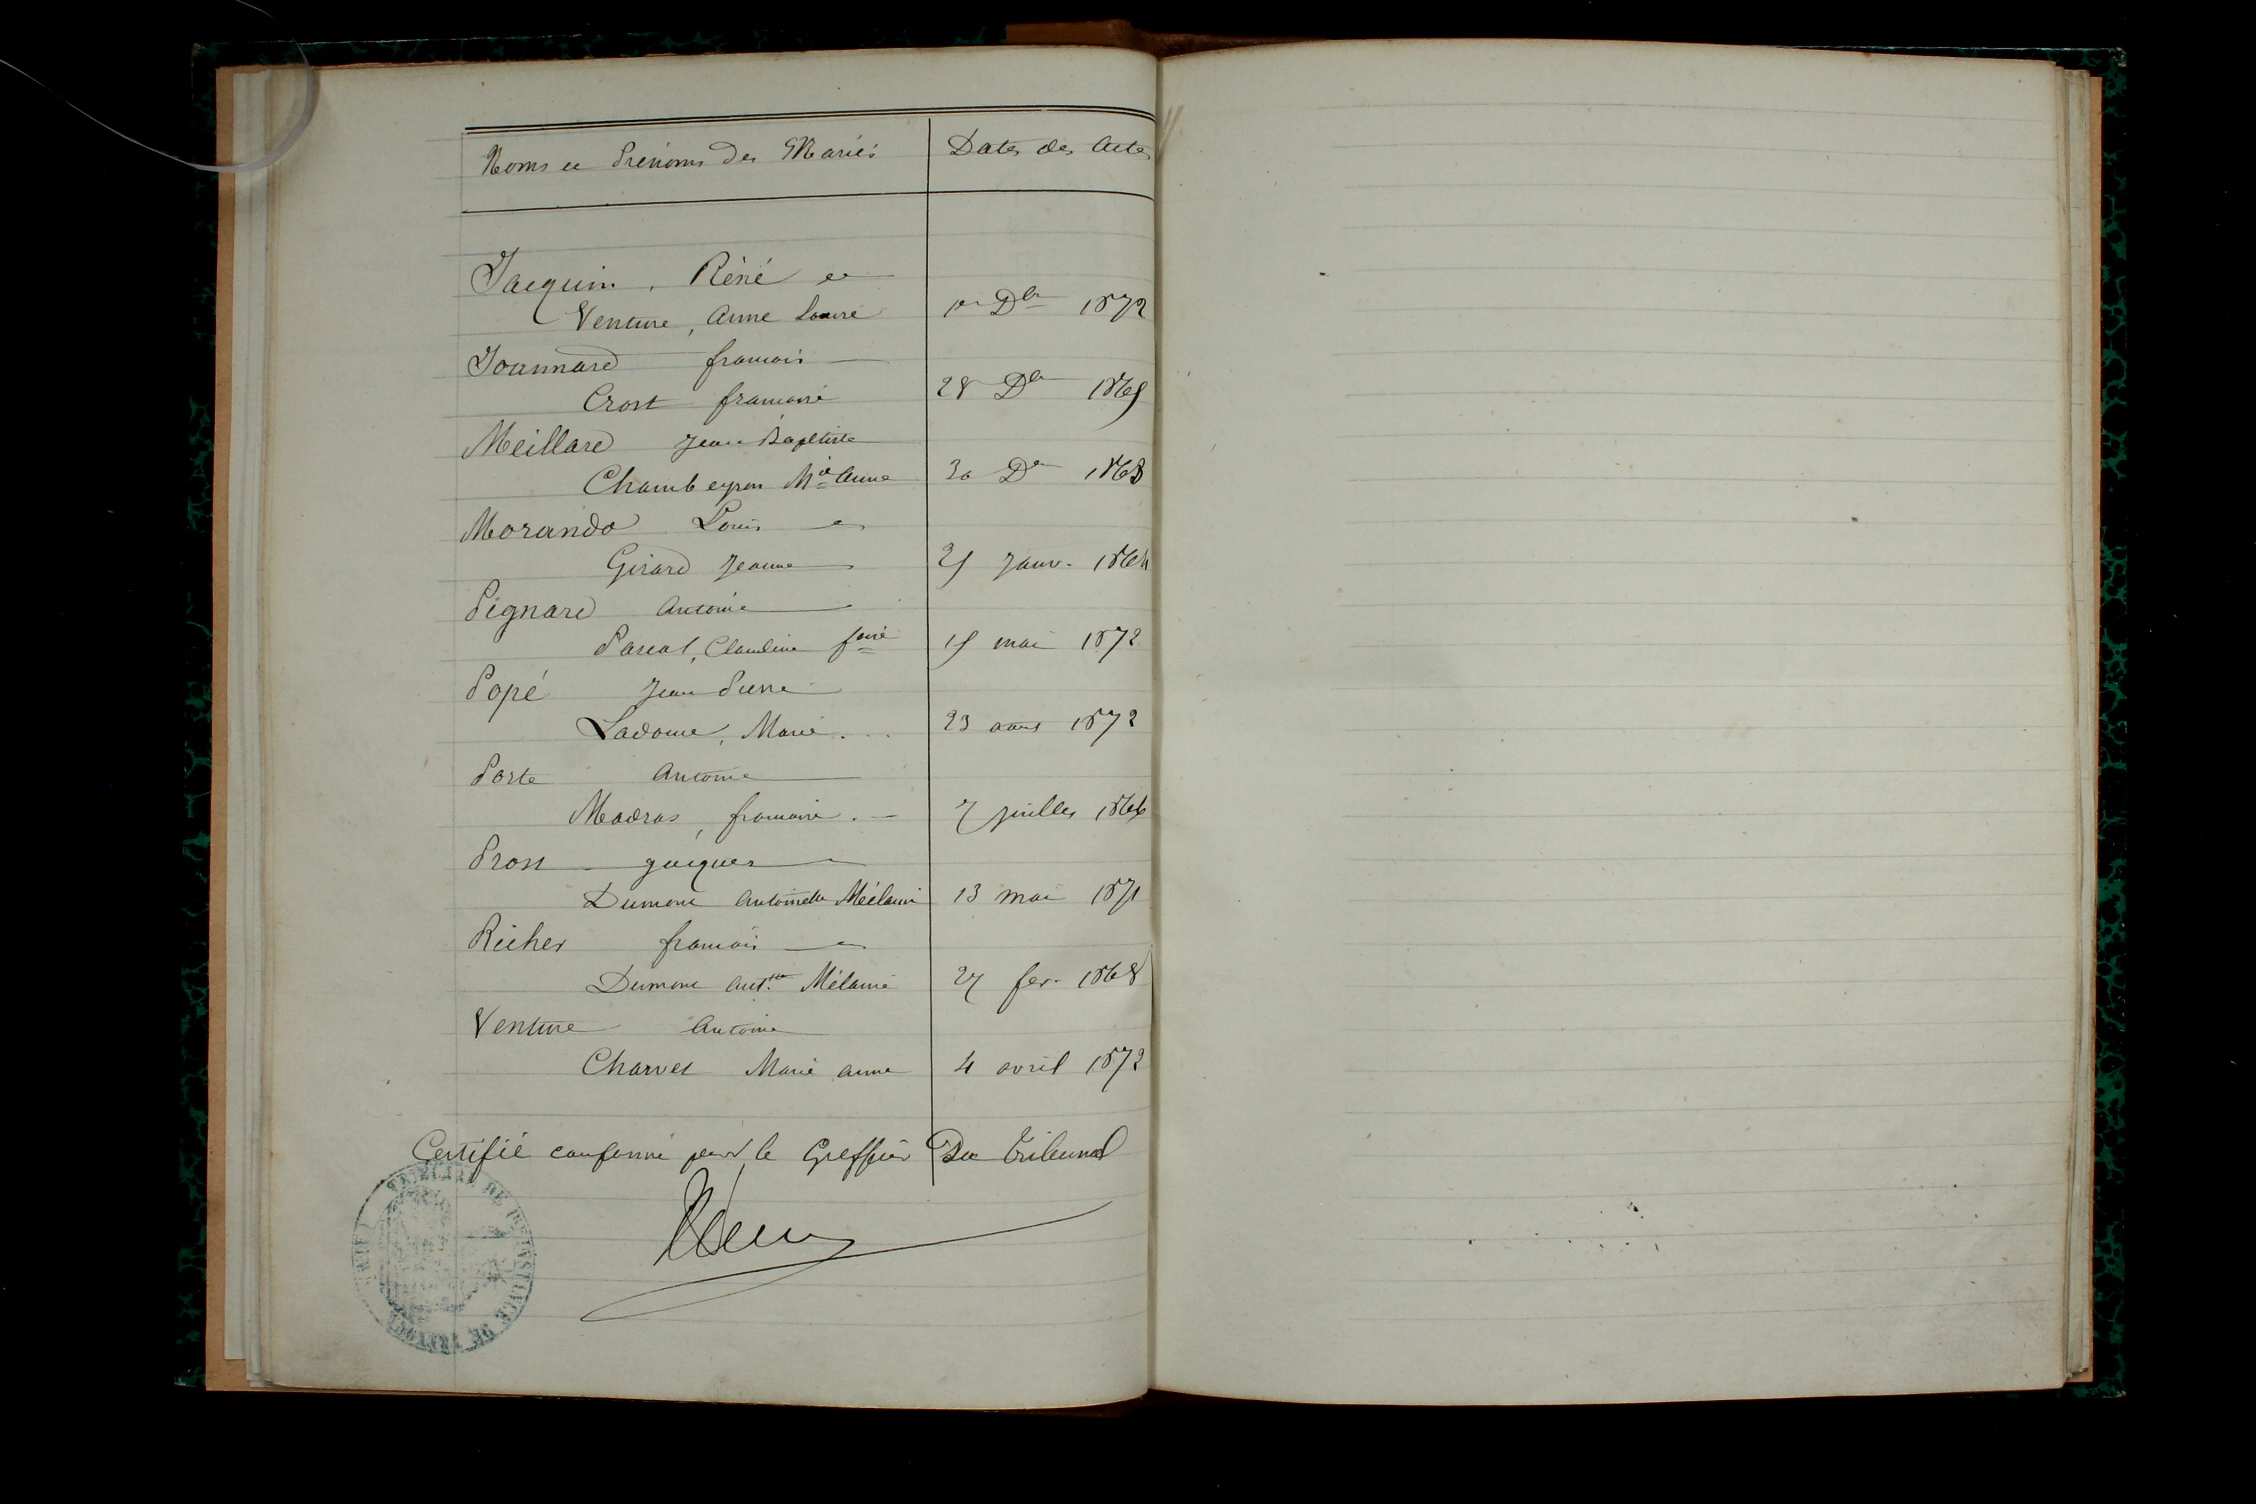 Noms et Prénoms des Mariés
Dates des Actes
Jacquin, Réné et
Venture, Anne Louise 1er Dbre 1872
Joannard françois
Crost françoise 28 Dbre 1869
Meillard Jean Baptiste
Chambeyron Mie Anne 30 Dre 1868
Morando Louis et
Girard Jeanne 29 Janv. 1864
Pignard Antoine
Pascal, Claudine foise 19 mai 1872
Popé Jean Pierre
Ladoue, Marie 23 aout 1872
Porte Antoine
Madras, françoise 7 juillet 1866
Prost Jacques
Dumont Antoinette Mélanie 13 mai 1871
Richer françois et
Dumont Antte Mélanie 27 fev. 1868
Venture Antoine
Charvet Marie Anne 4 avril 1872
Certifié conforme par le Greffier Du Tribunal